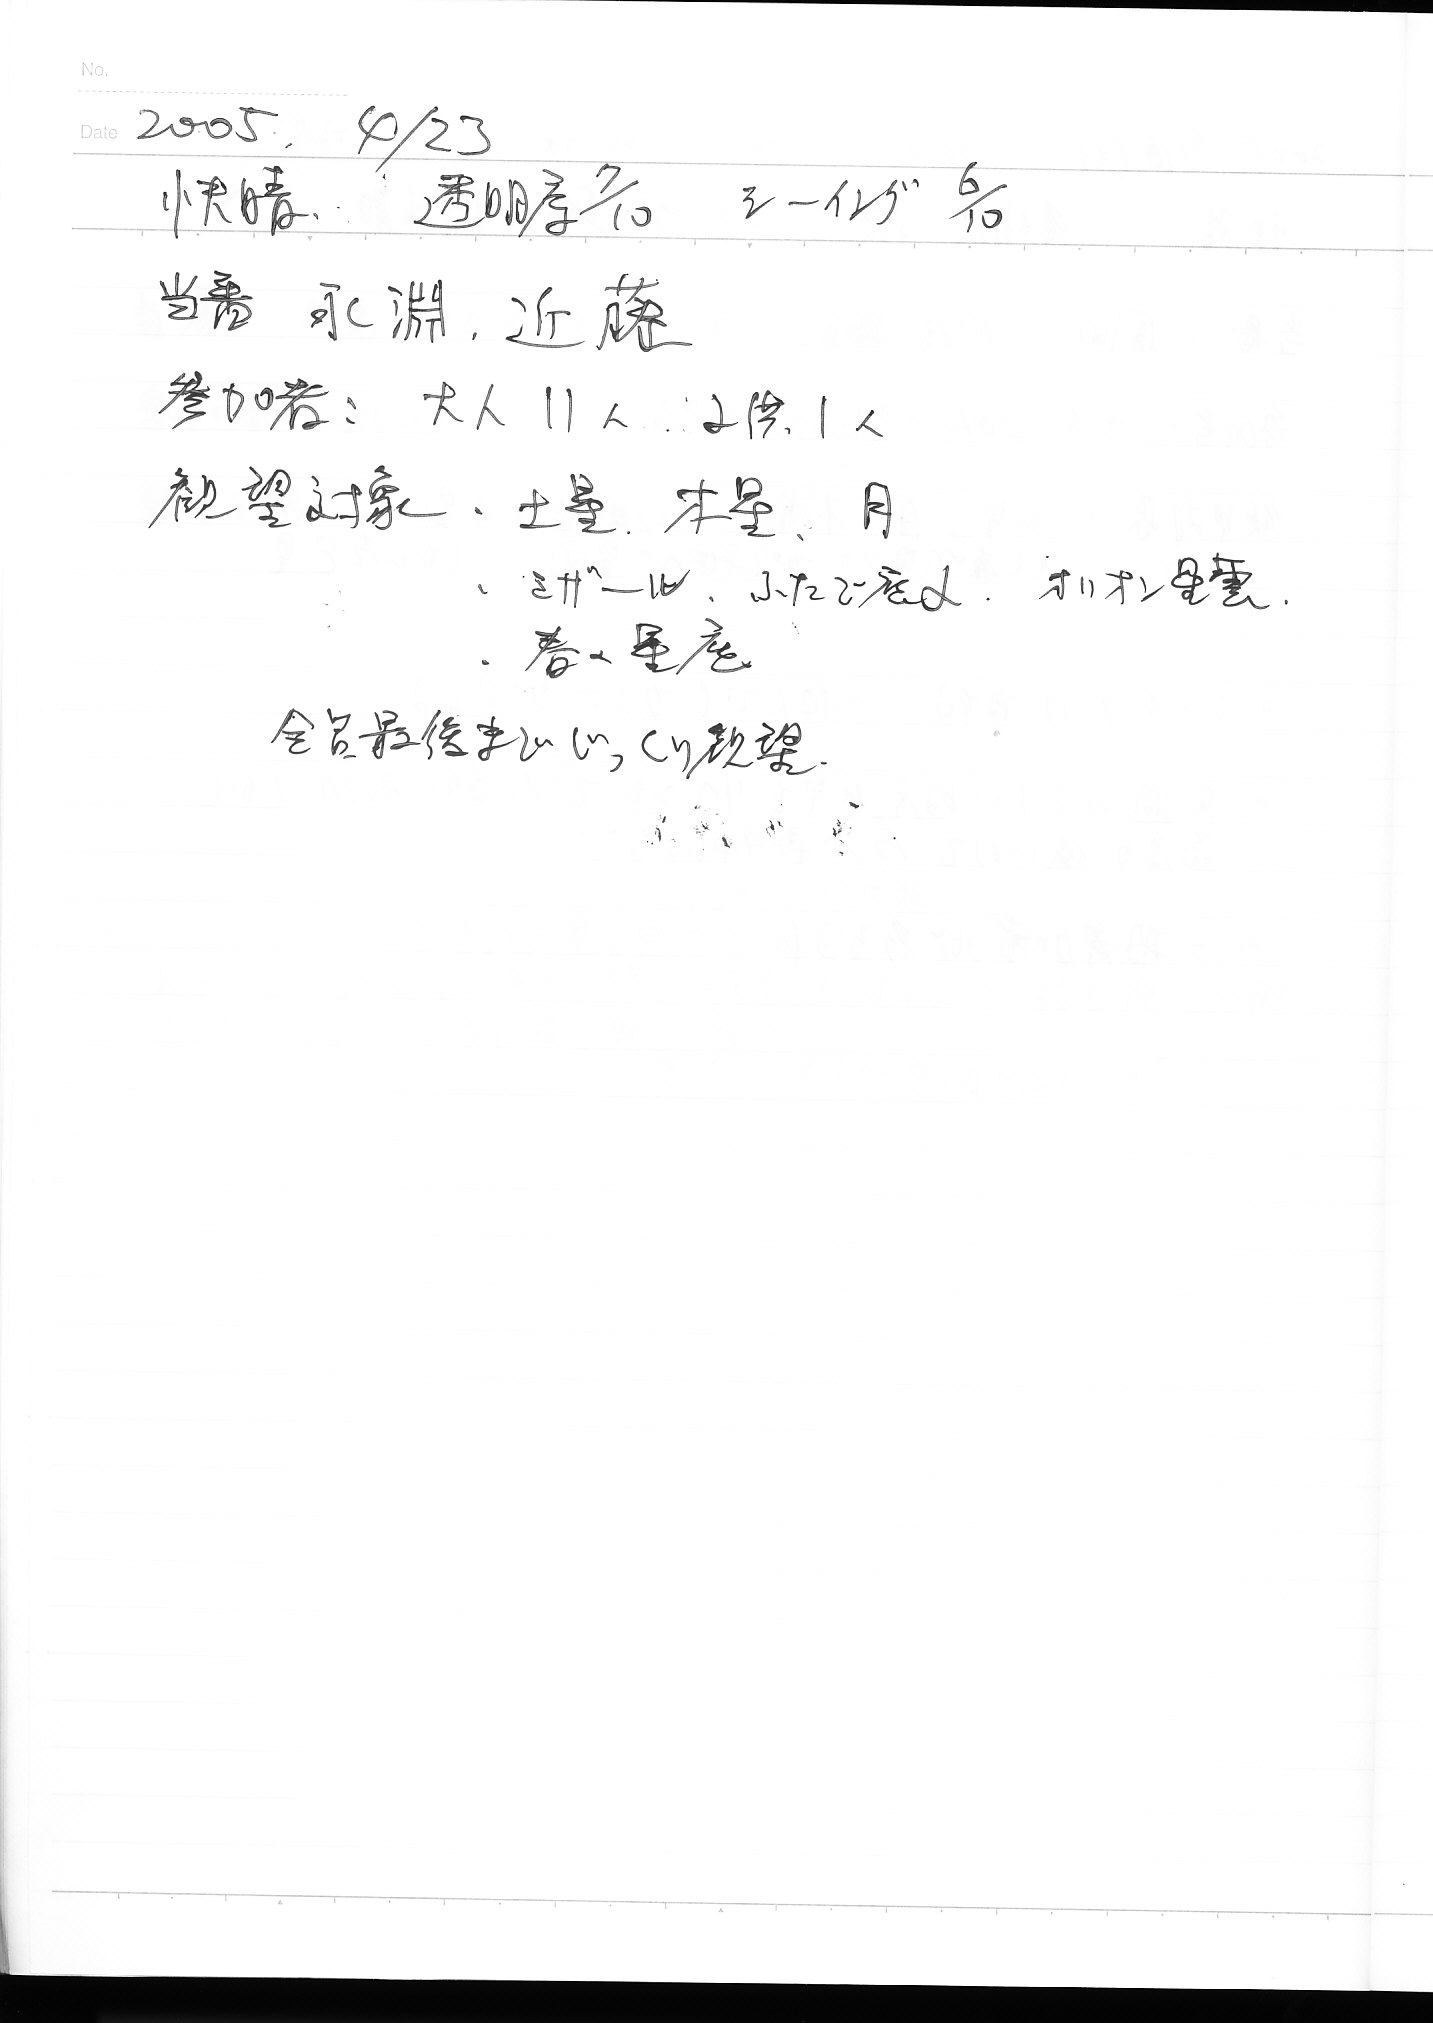 No.
Date 2005. 4/23
快晴. 透明度 7/10 シーイング 6/10
当番 永淵、近藤
参加者: 大人 11人 子供 1人
観望対象・土星、木星、月
・ミザール、ふたご座α、オリオン星雲.
・春の星座
全員最後までじっくり観望.